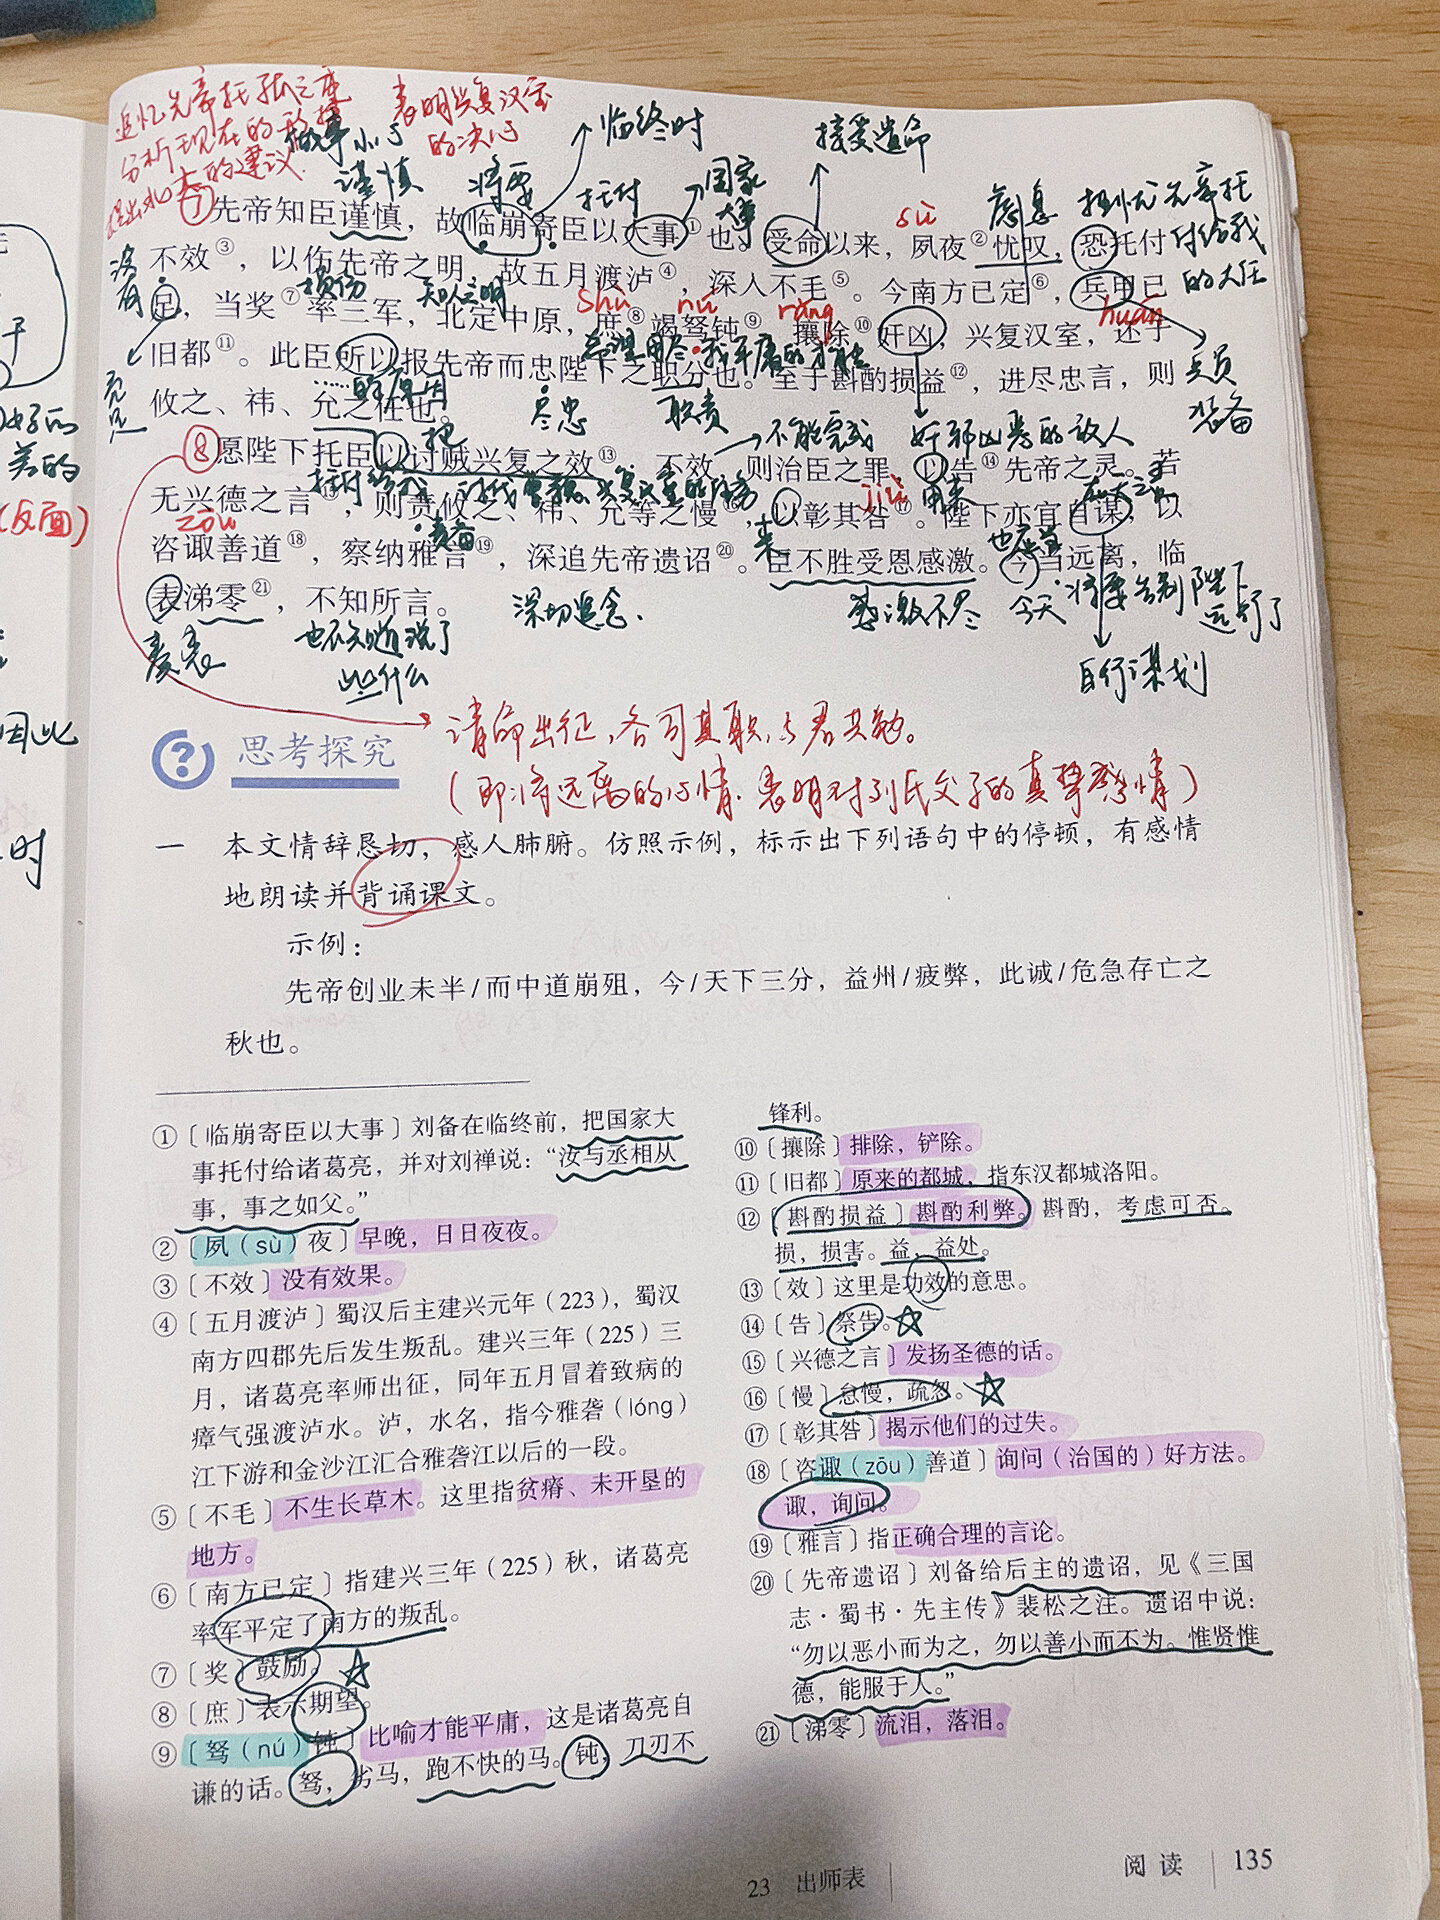 追忆先帝托孤之事
分析现在的形势
提出北 的建议
表明兴复汉室
的决心
做事小心
谨慎
将要
临终时
托付
国家
大事
接受遗命
sù
担忧先帝托
付给我
的大任
⑦先帝知臣谨慎，故临崩寄臣以大事①也。受命以来，夙夜②忧叹，恐托付
不效③，以伤先帝之明，故五月渡泸④，深入不毛⑤。今南方已定⑥，兵甲已
没有
损伤
知人之明
shù
nú
rǎng
huán
足，当奖⑦率三军，北定中原，庶⑧竭驽钝⑨，攘除⑩奸凶，兴复汉室，还于
旧都⑪。此臣所以报先帝而忠陛下之职分也。至于斟酌损益⑫，进尽忠言，则
充足
尽忠
职责
兵员
装备
攸之、祎、允之任也。
把
不能完成
奸邪凶恶的敌人
⑧愿陛下托臣以讨贼兴复之效⑬，不效，则治臣之罪，以告⑭先帝之灵。若
无兴德之言⑮，则责攸之、祎、允等之慢⑯，以彰其咎⑰。陛下亦宜自谋，以
zōu
责备
来
jiù
用来
也应当
咨诹善道⑱，察纳雅言⑲，深追先帝遗诏⑳。臣不胜受恩感激。今当远离，临
表涕零㉑，不知所言。
奏表
也不知道说了
些什么
深切追念.
感激不尽
今天
将要告别陛下
远行了
自行谋划
请命出征，各司其职，与君共勉。
（即将远离的心情.表明对刘氏父子的真挚感情）
思考探究
一 本文情辞恳切，感人肺腑。仿照示例，标示出下列语句中的停顿，有感情
地朗读并背诵课文。
示例：
先帝创业未半/而中道崩殂，今/天下三分，益州/疲弊，此诚/危急存亡之
秋也。
①〔临崩寄臣以大事〕刘备在临终前，把国家大
事托付给诸葛亮，并对刘禅说：“汝与丞相从
事，事之如父。”
②〔夙（sù）夜〕早晚，日日夜夜。
③〔不效〕没有效果。
④〔五月渡泸〕蜀汉后主建兴元年（223），蜀汉
南方四郡先后发生叛乱。建兴三年（225）三
月，诸葛亮率师出征，同年五月冒着致病的
瘴气强渡泸水。泸，水名，指今雅砻（lóng）
江下游和金沙江汇合雅砻江以后的一段。
⑤〔不毛〕不生长草木。这里指贫瘠、未开垦的
地方。
⑥〔南方已定〕指建兴三年（225）秋，诸葛亮
率军平定了南方的叛乱。
⑦〔奖〕鼓励。
⑧〔庶〕表示期望。
⑨〔驽（nú）钝〕比喻才能平庸，这是诸葛亮自
谦的话。驽，劣马，跑不快的马。钝，刀刃不
锋利。
⑩〔攘除〕排除，铲除。
⑪〔旧都〕原来的都城，指东汉都城洛阳。
⑫〔斟酌损益〕斟酌利弊。斟酌，考虑可否。
损，损害。益，益处。
⑬〔效〕这里是功效的意思。
⑭〔告〕祭告。
⑮〔兴德之言〕发扬圣德的话。
⑯〔慢〕怠慢，疏忽。
⑰〔彰其咎〕揭示他们的过失。
⑱〔咨诹（zōu）善道〕询问（治国的）好方法。
诹，询问。
⑲〔雅言〕指正确合理的言论。
⑳〔先帝遗诏〕刘备给后主的遗诏，见《三国
志·蜀书·先主传》裴松之注。遗诏中说：
“勿以恶小而为之，勿以善小而不为。惟贤惟
德，能服于人。”
㉑〔涕零〕流泪，落泪。
23 出师表
阅读 135
好的
美的
（反面）
因此
时